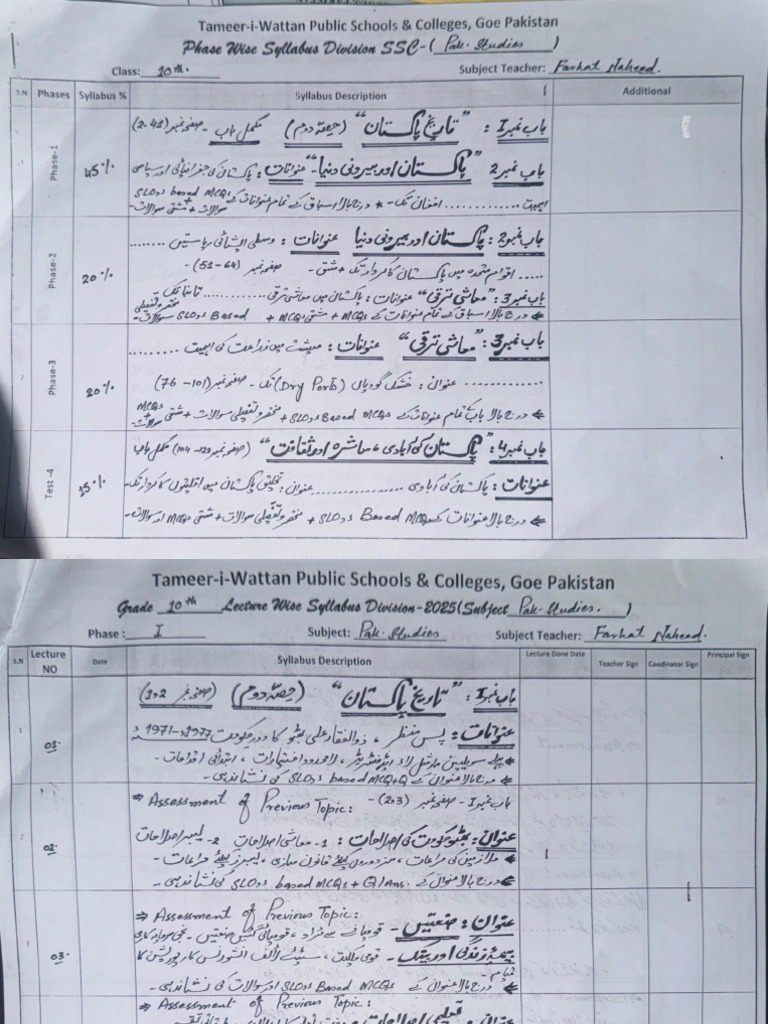 Tameer-i-Wattan Public Schools & Colleges, Goe Pakistan
Phase Wise Syllabus Division SSC-( Pak. Studies )
Class: 10th. Subject Teacher: Farhat Naheed.
S.N Phases Syllabus % Syllabus Description Additional
Phase-1 45%
باب نمبر 1: "تاریخ پاکستان" (حصہ دوم) مکمل باب - صفحہ نمبر (2-43)
باب نمبر 2 "پاکستان اور بیرونی دنیا" - عنوانات: پاکستان کی جغرافیائی اور سیاسی
اہمیت ............ افغان تک - * درج بالا اسباق کے تمام عنوانات کے SLOs based MCQs + سوالات + مشقی سوالات -
Phase-2 20%
باب نمبر 2: پاکستان اور بیرونی دنیا عنوانات: وسطی ایشیائی ریاستیں ........
..... اقوام متحدہ میں پاکستان کا کردار تک + مشق - صفحہ نمبر (51-64) -
باب نمبر 3: "معاشی ترقی" عنوانات: پاکستان میں معاشی ترقی ............ تک
درج بالا اسباق کے تمام عنوانات کے MCQs + مشقی MCQs + SLOs Based مختصر و تفصیلی سوالات -
Phase-3 20%
باب نمبر 3: "معاشی ترقی" عنوانات: معیشت میں زراعت کی اہمیت .........
............ عنوان: خشک گودیاں (Dry Ports) تک - صفحہ نمبر (76-101)
درج بالا باب کے تمام عنوانات کے SLOs Based MCQs + مختصر و تفصیلی سوالات + مشقی MCQs + سوالات
Test-4 15%
باب نمبر 4: "پاکستان کی آبادی، معاشرہ اور ثقافت" (صفحہ نمبر 104-129) مکمل باب
عنوانات: پاکستان کی آبادی ............ عنوان: تخلیق پاکستان میں اقلیتوں کا کردار تک -
درج بالا عنوانات کے SLOs Based MCQs + مختصر و تفصیلی سوالات + مشقی MCQs اور سوالات -
Tameer-i-Wattan Public Schools & Colleges, Goe Pakistan
Grade 10th Lecture Wise Syllabus Division-2025(Subject Pak. Studies. )
Phase: I Subject: Pak. Studies Subject Teacher: Farhat Naheed.
S.N Lecture NO Date Syllabus Description Lecture Done Date Teacher Sign Coodinator Sign Principal Sign
1 01.
باب نمبر 1: "تاریخ پاکستان" (حصہ دوم) (صفحہ نمبر 1،2)
عنوانات: پس منظر، ذوالفقار علی بھٹو کا دور حکومت 1971-1977ء
پہلے سویلین مارشل لاء ایڈمنسٹریٹر، لامحدود اختیارات، ابتدائی اقدامات -
درج بالا عنوان کے SLOs based MCQ+Q کی نشاندہی -
2 02.
⇒ Assessment of Previous Topic: باب نمبر 1 - صفحہ نمبر (2،3) -
عنوان: بھٹو حکومت کی اصلاحات: 1- معاشی اصلاحات 2- لیبر اصلاحات
ملازمین کی مراعات، مزدوروں کیلئے قانون سازی، لیبرز کیلئے مراعات -
درج بالا عنوان کے SLOs based MCQs + Q/Ans. کی نشاندہی -
3 03.
⇒ Assessment of Previous Topic:
عنوان: صنعتیں - قومیانے سے مراد، قومیائی گئیں صنعتیں - نجی سرمایہ کاری
بیمہ زندگی اور بینک - قومی ملکیت، سٹیٹ لائف انشورنس کارپوریشن کا قیام -
درج بالا عنوان کے SLOs Based MCQs اور سوالات کی نشاندہی -
⇒ Assessment of Previous Topic:
عنوان: تعلیمی اصلاحات